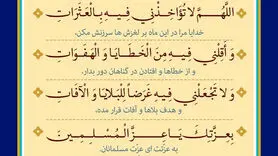 اللَّهُمَّ لَا تُؤَاخِذْنِي فِيهِ بِالْعَثَرَاتِ
خدایا مرا در این ماه بر لغزش ها سرزنش مکن.
وَ أَقِلْنِي فِيهِ مِنَ الْخَطَايَا وَ الْهَفَوَاتِ
و از خطاها و افتادن در گناهان دور بدار.
وَ لَا تَجْعَلْنِي فِيهِ غَرَضاً لِلْبَلَايَا وَ الْآفَاتِ
و هدف بلاها و آفات قرار مده.
بِعِزَّتِكَ يَا عِزَّ الْمُسْلِمِينَ
به عزتت ای عزت مسلمانان.